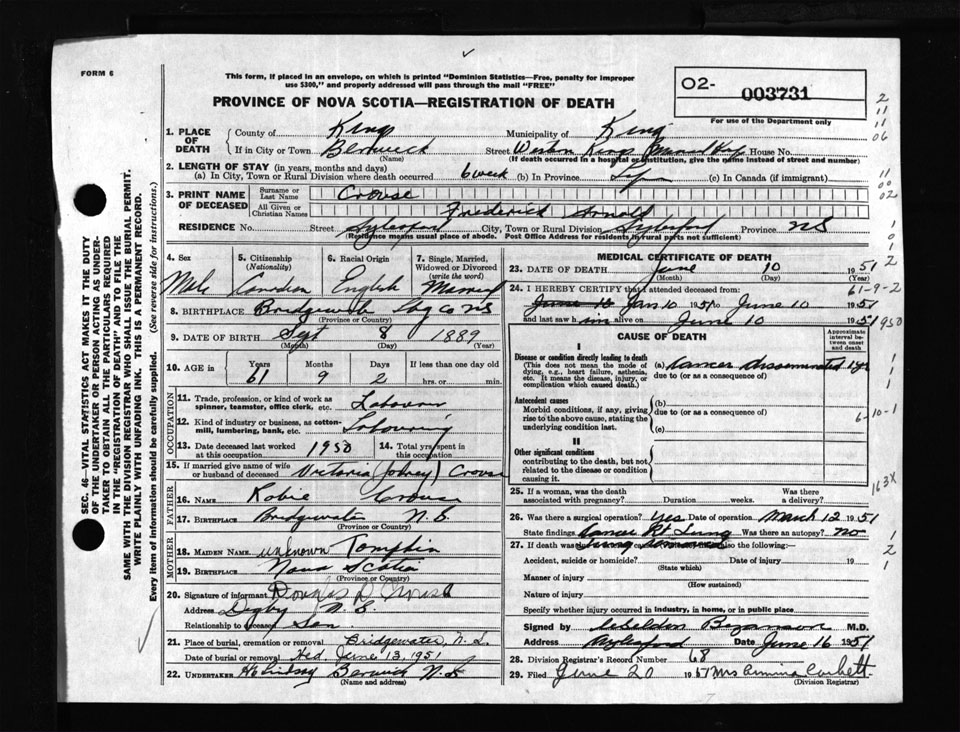 FORM 6
This form, if placed in an envelope, on which is printed "Dominion Statistics—Free, penalty for improper
use $300," and properly addressed will pass through the mail "FREE"
PROVINCE OF NOVA SCOTIA—REGISTRATION OF DEATH
O2- 003731
For use of the Department only
2
11
11
06
SEC. 46—VITAL STATISTICS ACT MAKES IT THE DUTY
OF THE UNDERTAKER OR PERSON ACTING AS UNDER-
TAKER TO OBTAIN ALL THE PARTICULARS REQUIRED
IN THE "REGISTRATION OF DEATH" AND TO FILE THE
SAME WITH THE DIVISION REGISTRAR WHO SHALL ISSUE THE BURIAL PERMIT.
WRITE PLAINLY WITH UNFADING INK. THIS IS A PERMANENT RECORD.
Every item of information should be carefully supplied. (See reverse side for instructions.)
1. PLACE OF DEATH
County of Kings Municipality of Kings
If in City or Town Berwick Street Western Kings Memorial Hosp House No.
(Name) (If death occurred in a hospital or institution, give the name instead of street and number)
2. LENGTH OF STAY (in years, months and days)
(a) In City, Town or Rural Division where death occurred 6 week (b) In Province Life (c) In Canada (if immigrant)
3. PRINT NAME OF DECEASED
Surname or Last Name Crouse
All Given or Christian Names Frederick Arnold
RESIDENCE No. Street City, Town or Rural Division Province NS
(Residence means usual place of abode. Post Office Address for residents in rural parts not sufficient)
4. Sex Male
5. Citizenship (Nationality) Canadian
6. Racial Origin English
7. Single, Married, Widowed or Divorced (write the word) Married
8. BIRTHPLACE Bridgewater NS
(Province or Country)
9. DATE OF BIRTH Sept 8 1889
(Month) (Day) (Year)
10. AGE in Years Months Days If less than one day old
61 9 2 hrs. or min.
OCCUPATION
11. Trade, profession, or kind of work as
spinner, teamster, office clerk, etc. Labourer
12. Kind of industry or business, as cotton-
mill, lumbering, bank, etc. Labouring
13. Date deceased last worked at this occupation 1950
14. Total yrs spent in this occupation
15. If married give name of wife or husband of deceased Victoria Crouse
FATHER
16. NAME Robie Crouse
17. BIRTHPLACE Bridgewater N.S.
(Province or Country)
MOTHER
18. MAIDEN NAME unknown Tompkin
19. BIRTHPLACE Nova Scotia
(Province or Country)
20. Signature of informant Douglas D. Crouse
Address Digby N.S.
Relationship to deceased Son
21. Place of burial, cremation or removal Bridgewater, N.S.
Date of burial or removal Wed. June 13, 1951
22. UNDERTAKER Lindsay Berwick N.S.
(Name and address)
MEDICAL CERTIFICATE OF DEATH
23. DATE OF DEATH June 10 1951
(Month) (Day) (Year)
24. I HEREBY CERTIFY that I attended deceased from: 61-9-2
Jan 10 1951 to June 10 1951
and last saw him alive on June 10 1951 1950
CAUSE OF DEATH
Approximate interval between onset and death
I
Disease or condition directly leading to death (a) Cancer disseminated 1 yr
(This does not mean the mode of dying, e.g., heart failure, asthenia, etc. It means the disease, injury, or complication which caused death.)
due to (or as a consequence of)
Antecedent causes
Morbid conditions, if any, giving rise to the above cause, stating the underlying condition last.
(b)
due to (or as a consequence of)
(c)
6-10-1
II
Other significant conditions
contributing to the death, but not related to the disease or condition causing it.
163X
25. If a woman, was the death associated with pregnancy? Duration weeks. Was there a delivery?
26. Was there a surgical operation? Yes Date of operation March 12 1951
State findings Cancer Rt Lung Was there an autopsy? no
27. If death was due to external causes also the following:—
Accident, suicide or homicide? Date of injury 19
(State which)
Manner of injury
(How sustained)
Nature of injury
Specify whether injury occurred in industry, in home, or in public place
Signed by Bezanson M.D.
Address Aylesford Date June 16 1951
28. Division Registrar's Record Number 68
29. Filed June 20 1951 Mrs Corbett
(Division Registrar)